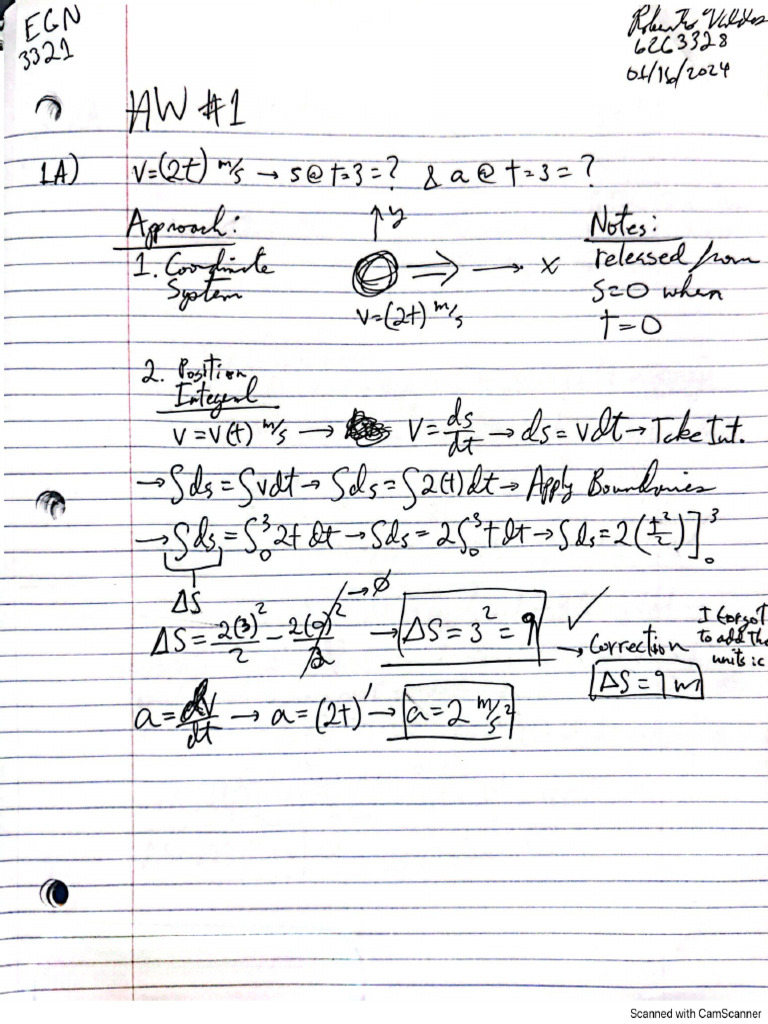 EGN
3321
6263328
01/16/2024
HW #1
1A) V=(2t) m/s → s@t=3=? & a@t=3=?
Approach:
1. Coordinate
System
y
x
V=(2t) m/s
Notes:
released from
S=0 when
t=0
2. Position
Integral
V=V(t) m/s → V=ds/dt → ds=vdt → Take Int.
→ ∫ds=∫vdt → ∫ds=∫2(t)dt → Apply Boundaries
→ ∫ds=∫₀³2t dt → ∫ds=2∫₀³t dt → ∫ds=2(t²/2)]₀³
ΔS
ΔS=2(3)²/2 - 2(0)²/2 → ∅ → ΔS=3²=9 ✓
→ Correction
I forgot
to add the
units :c
ΔS=9 m
a=dV/dt → a=(2t)' → a=2 m/s²
Scanned with CamScanner